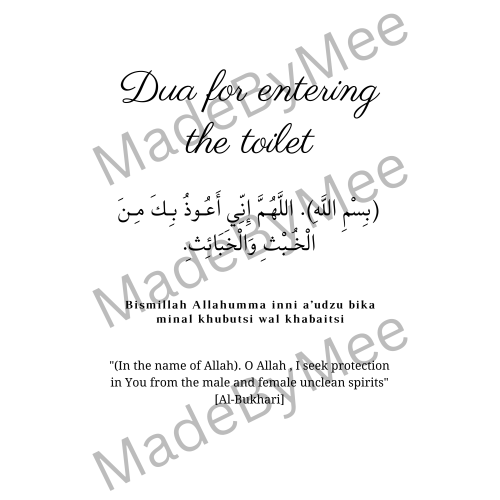 Dua for entering
the toilet
(بِسْمِ اللَّهِ). اللَّهُمَّ إِنِّي أَعُـوذُ بِـكَ مِـنَ
الْخُـبْثِ وَالْخَبَائِثِ.
Bismillah Allahumma inni a'udzu bika
minal khubutsi wal khabaitsi
"(In the name of Allah). O Allah , I seek protection
in You from the male and female unclean spirits"
[Al-Bukhari]
MadeByMee
MadeByMee
MadeByMee